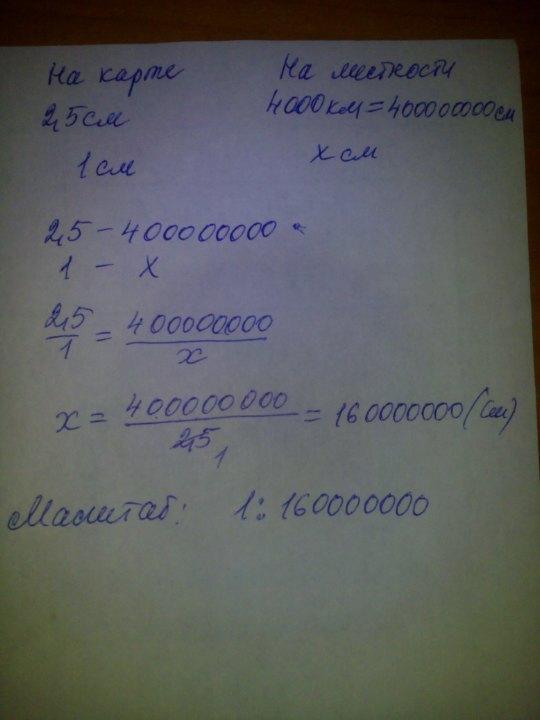 На карте На местности
2,5см 4000км=400000000см
1см х см
2,5 – 400000000
1 – х
2,5/1 = 400000000/х
х = 400000000/2,5 = 160000000(см)
1
Масштаб: 1:160000000